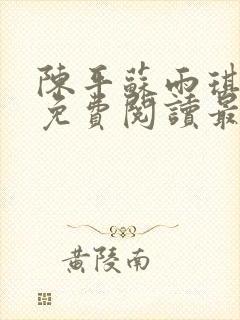 陳平蘇雨琪
免費閱讀最
黃陵南